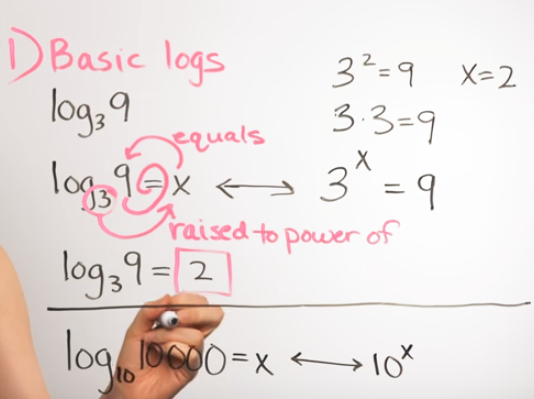 1) Basic logs
3² = 9 x = 2
log₃9
3·3 = 9
equals
log₃9 = x ⟷ 3ˣ = 9
raised to power of
log₃9 = 2
log₁₀10000 = x ⟷ 10ˣ